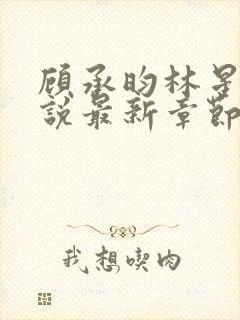 顾承昀林星
說最新章節
我想喫肉